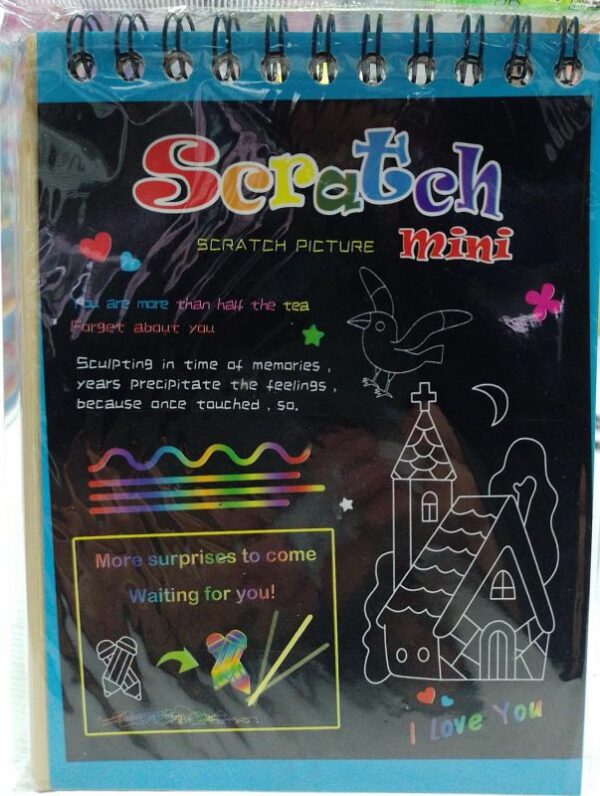 Scratch
SCRATCH PICTURE mini
You are more than half the tea
Forget about you
Sculpting in time of memories ,
years precipitate the feelings ,
because once touched , so.
More surprises to come
Waiting for you!
I Love You